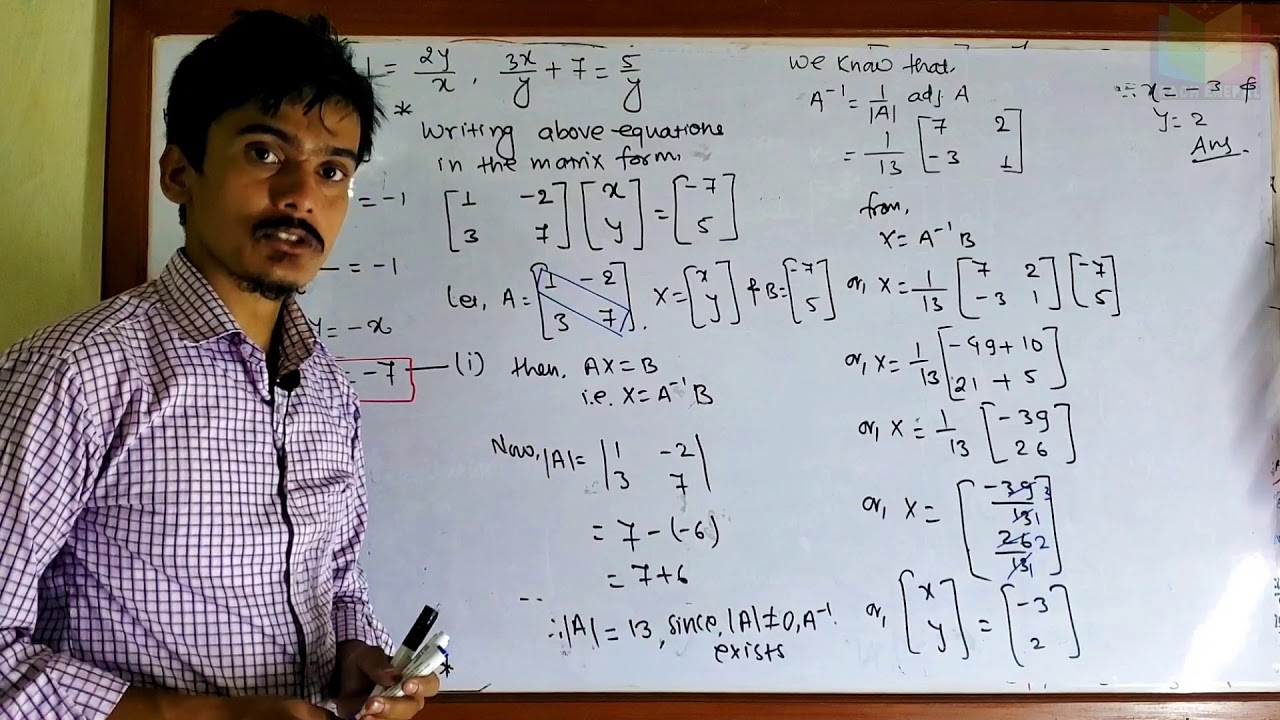 1 = 2y/x , 3x/y + 7 = 5/y
*
Writing above equations
in the matrix form.
= -1
[1 -2] [x] = [-7]
[3 7] [y] [5]
= -1
y = -x
= -7 — (i)
let, A = [1 -2] . X = [x] & B = [-7]
[3 7] [y] [5]
then, AX = B
i.e. X = A⁻¹ B
Now, |A| = |1 -2|
|3 7|
= 7 - (-6)
= 7 + 6
∴ |A| = 13, since, |A| ≠ 0, A⁻¹
exists
*
We know that,
A⁻¹ = 1/|A| adj A
= 1/13 [7 2]
[-3 1]
from,
X = A⁻¹ B
or, X = 1/13 [7 2] [-7]
[-3 1] [5]
or, X = 1/13 [-49 + 10]
[21 + 5]
or, X = 1/13 [-39]
[26]
or, X = [-39/13] 3 1
[26/13] 2 1
or, [x] = [-3]
[y] [2]
∴ x = -3 &
y = 2
Ans.